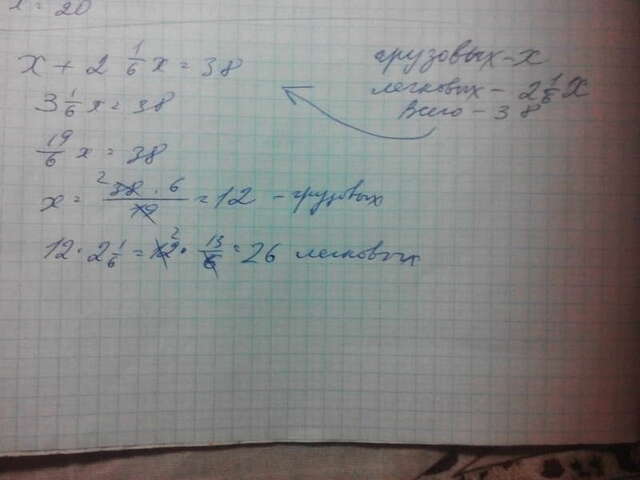 = 20
x + 2 1/6 x = 38
3 1/6 x = 38
19/6 x = 38
x = 2 38 · 6 / 19 = 12 - грузовых
12 · 2 1/6 = 12 2 · 13/6 = 26 легковых
грузовых - x
легковых - 2 1/6 x
Всего - 38